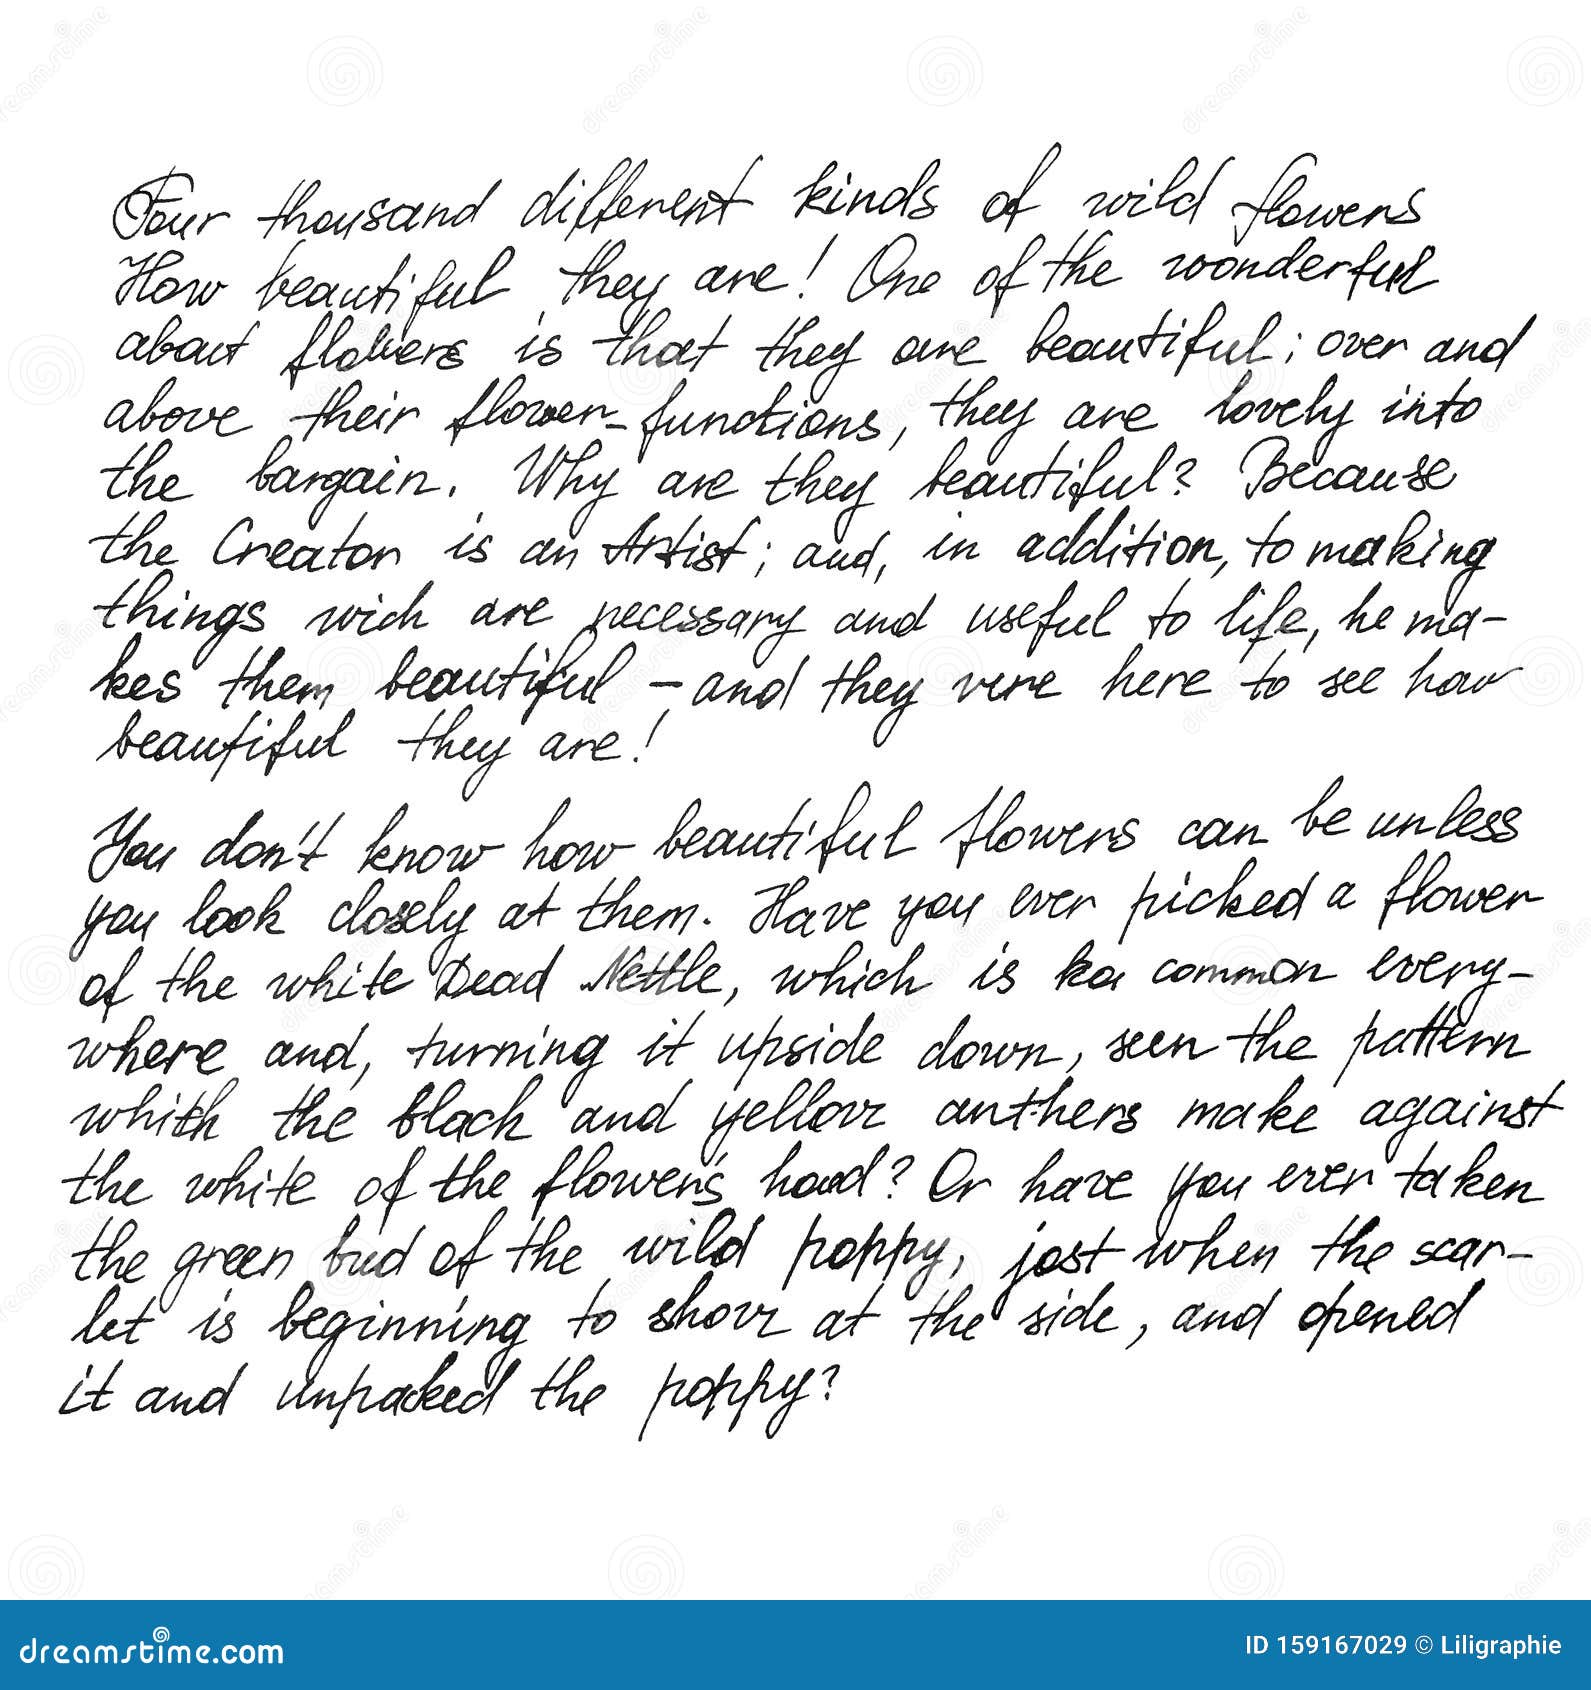 Four thousand different kinds of wild flowers
How beautiful they are! One of the wonderful
about flowers is that they are beautiful; over and
above their flower-functions, they are lovely into
the bargain. Why are they beautiful? Because
the Creator is an Artist; and, in addition, to making
things wich are necessary and useful to life, he ma-
kes them beautiful – and they vere here to see how
beautiful they are!
You don't know how beautiful flowers can be unless
you look closely at them. Have you ever picked a flower
of the white Dead Nettle, which is common every-
where and, turning it upside down, seen the pattern
whith the black and yellow anthers make against
the white of the flower's hood? Or have you ever taken
the green bud of the wild poppy, jost when the scar-
let is beginning to show at the side, and opened
it and unpacked the poppy?
dreamstime.com
ID 159167029 © Liligraphie